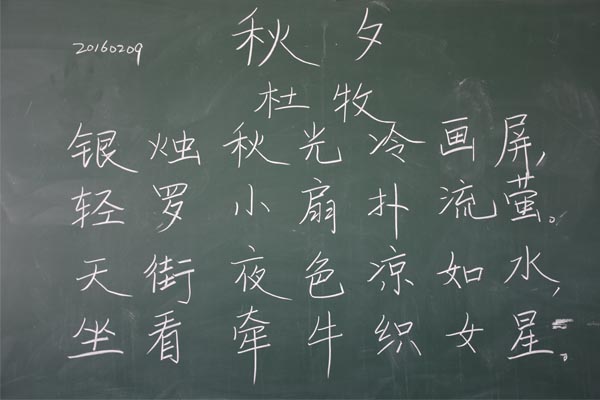 20160209
秋夕
杜牧
银烛秋光冷画屏,
轻罗小扇扑流萤。
天街夜色凉如水,
坐看牵牛织女星。